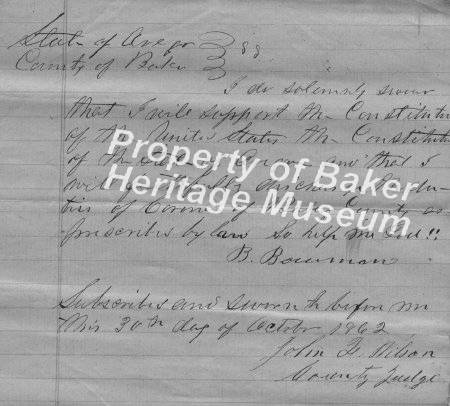 State of Oregon } ss
County of Baker
I do solemnly swear
that I will support the Constitution
of the United States the Constitution
of the State of and that I
will
ties of Coroner of County as
prescribed by law So help me God!!
B. Bowman
Subscribed and sworn to before me
this 30th day of October 1862
John Q. Wilson
County Judge
Property of Baker
Heritage Museum